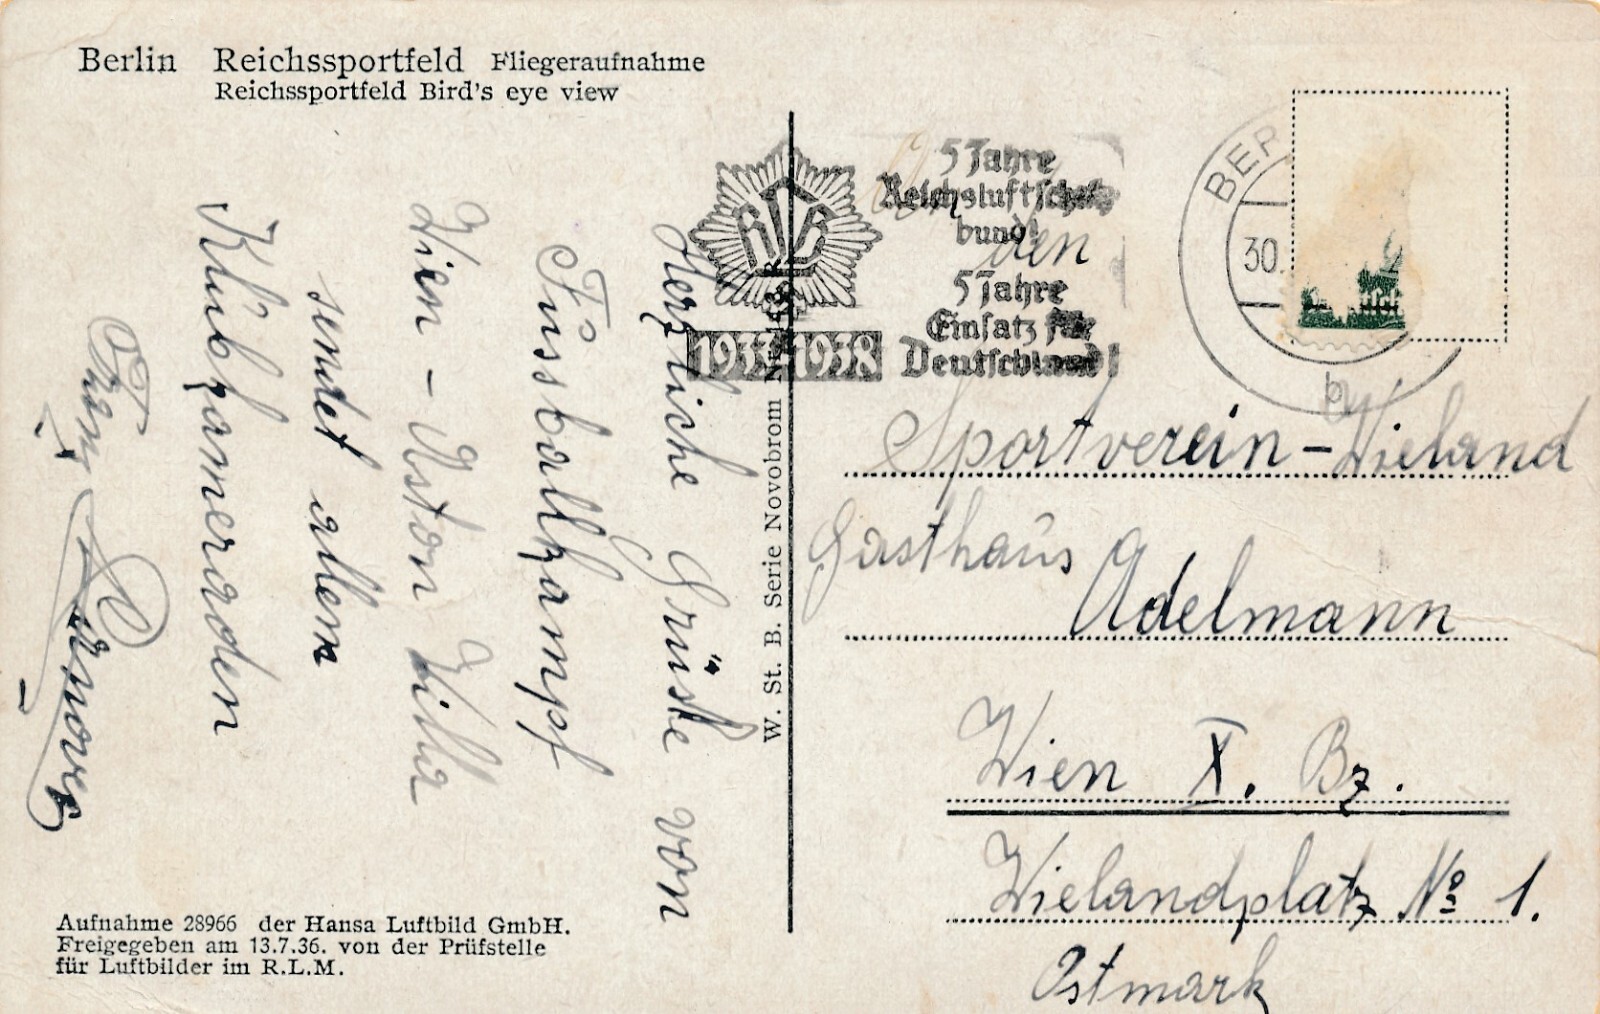 Berlin Reichssportfeld Fliegeraufnahme
Reichssportfeld Bird's eye view
5 Jahre
Reichsluftschutz
bund!
5 Jahre
Einsatz für
Deutschland!
RLB
1933-1938
BER
30.
b
den
Herzliche Grüsse von
Fussballkampf
Wien - Aston Villa
sendet allem
Klubkameraden
Franz
W. St. B. Serie Novobrom
Sportverein - Wieland
Gasthaus
Adelmann
Wien X. Bz.
Wielandplatz No 1.
Ostmark
Aufnahme 28966 der Hansa Luftbild GmbH.
Freigegeben am 13.7.36. von der Prüfstelle
für Luftbilder im R.L.M.